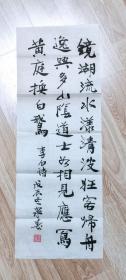 鏡湖流水漾清波狂客歸舟
逸興多山陰道士如相見應寫
黄庭換白鵞
李白詩